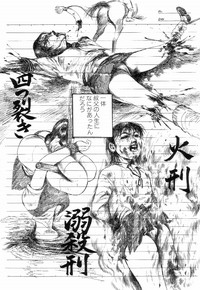 四つ裂き
一体
秩父の人生に
なにがあったん
だろう
火刑
溺殺刑